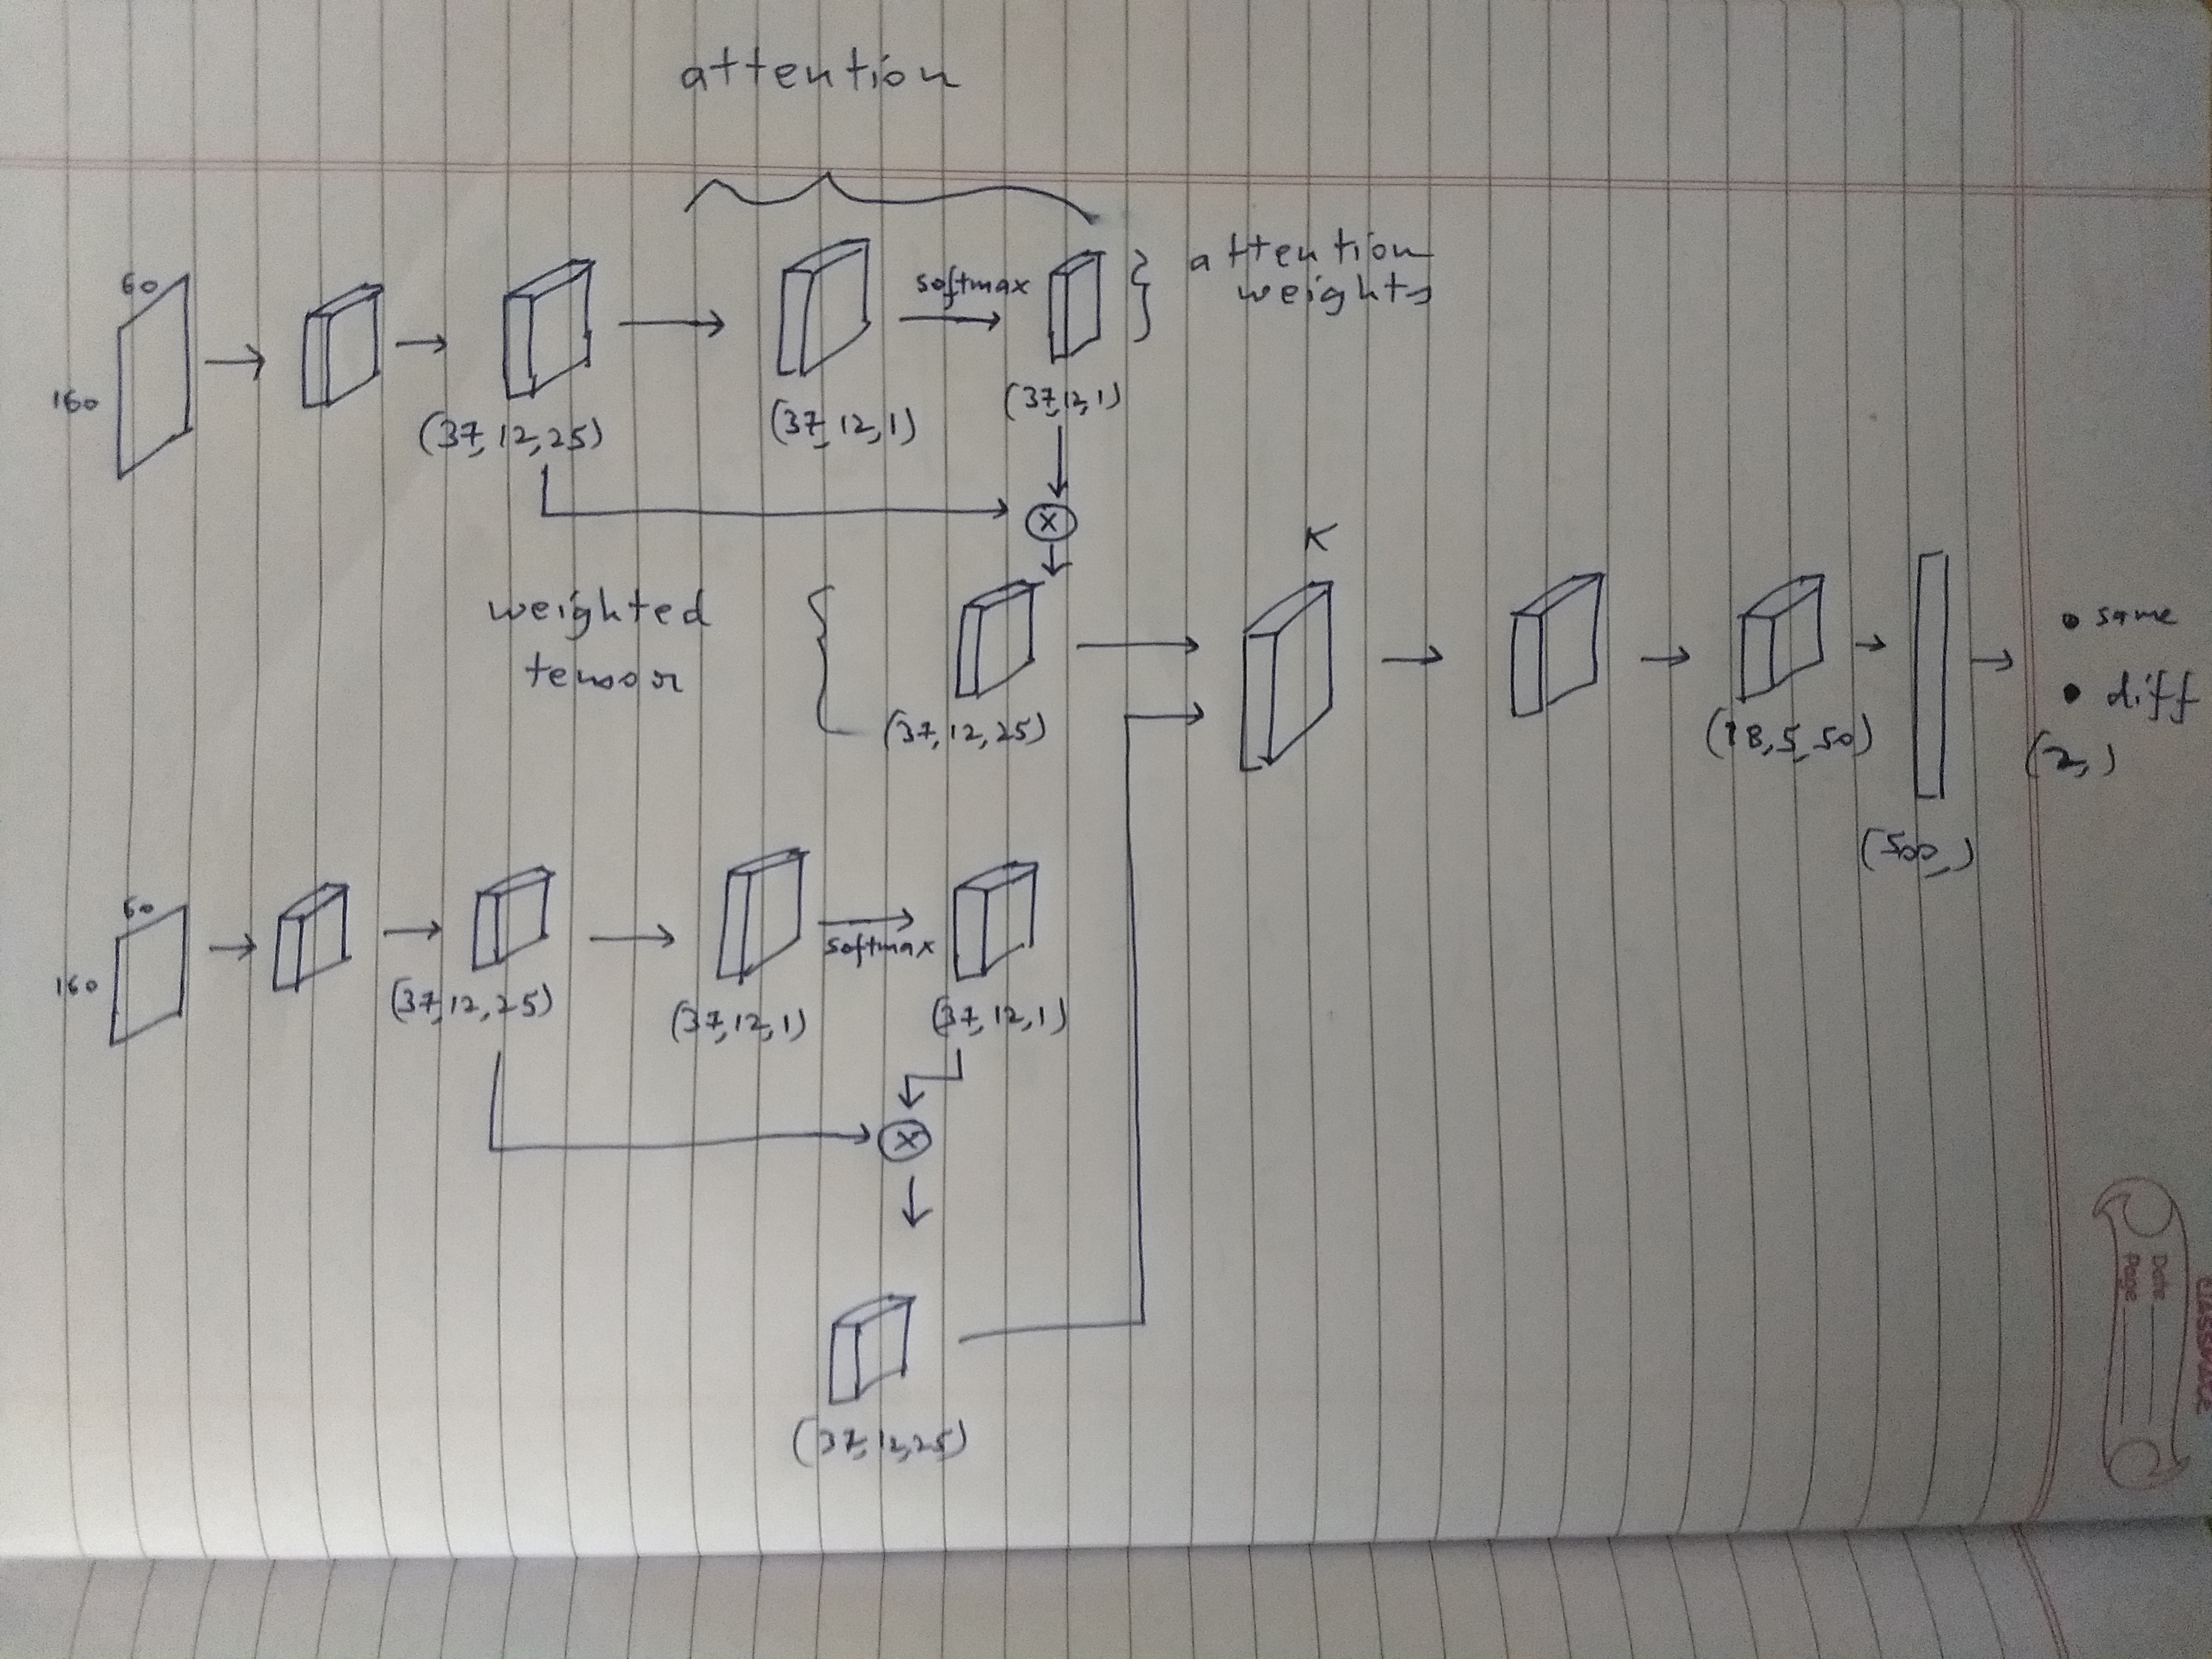 attention
60
160
(37,12,25)
(37,12,1)
softmax
(37,12,1)
attention
weights
x
weighted
tensor
(37,12,25)
K
(18,5,50)
(500,)
same
diff
(2,)
60
160
(37,12,25)
(37,12,1)
softmax
(37,12,1)
x
(37,12,25)
Date
Page